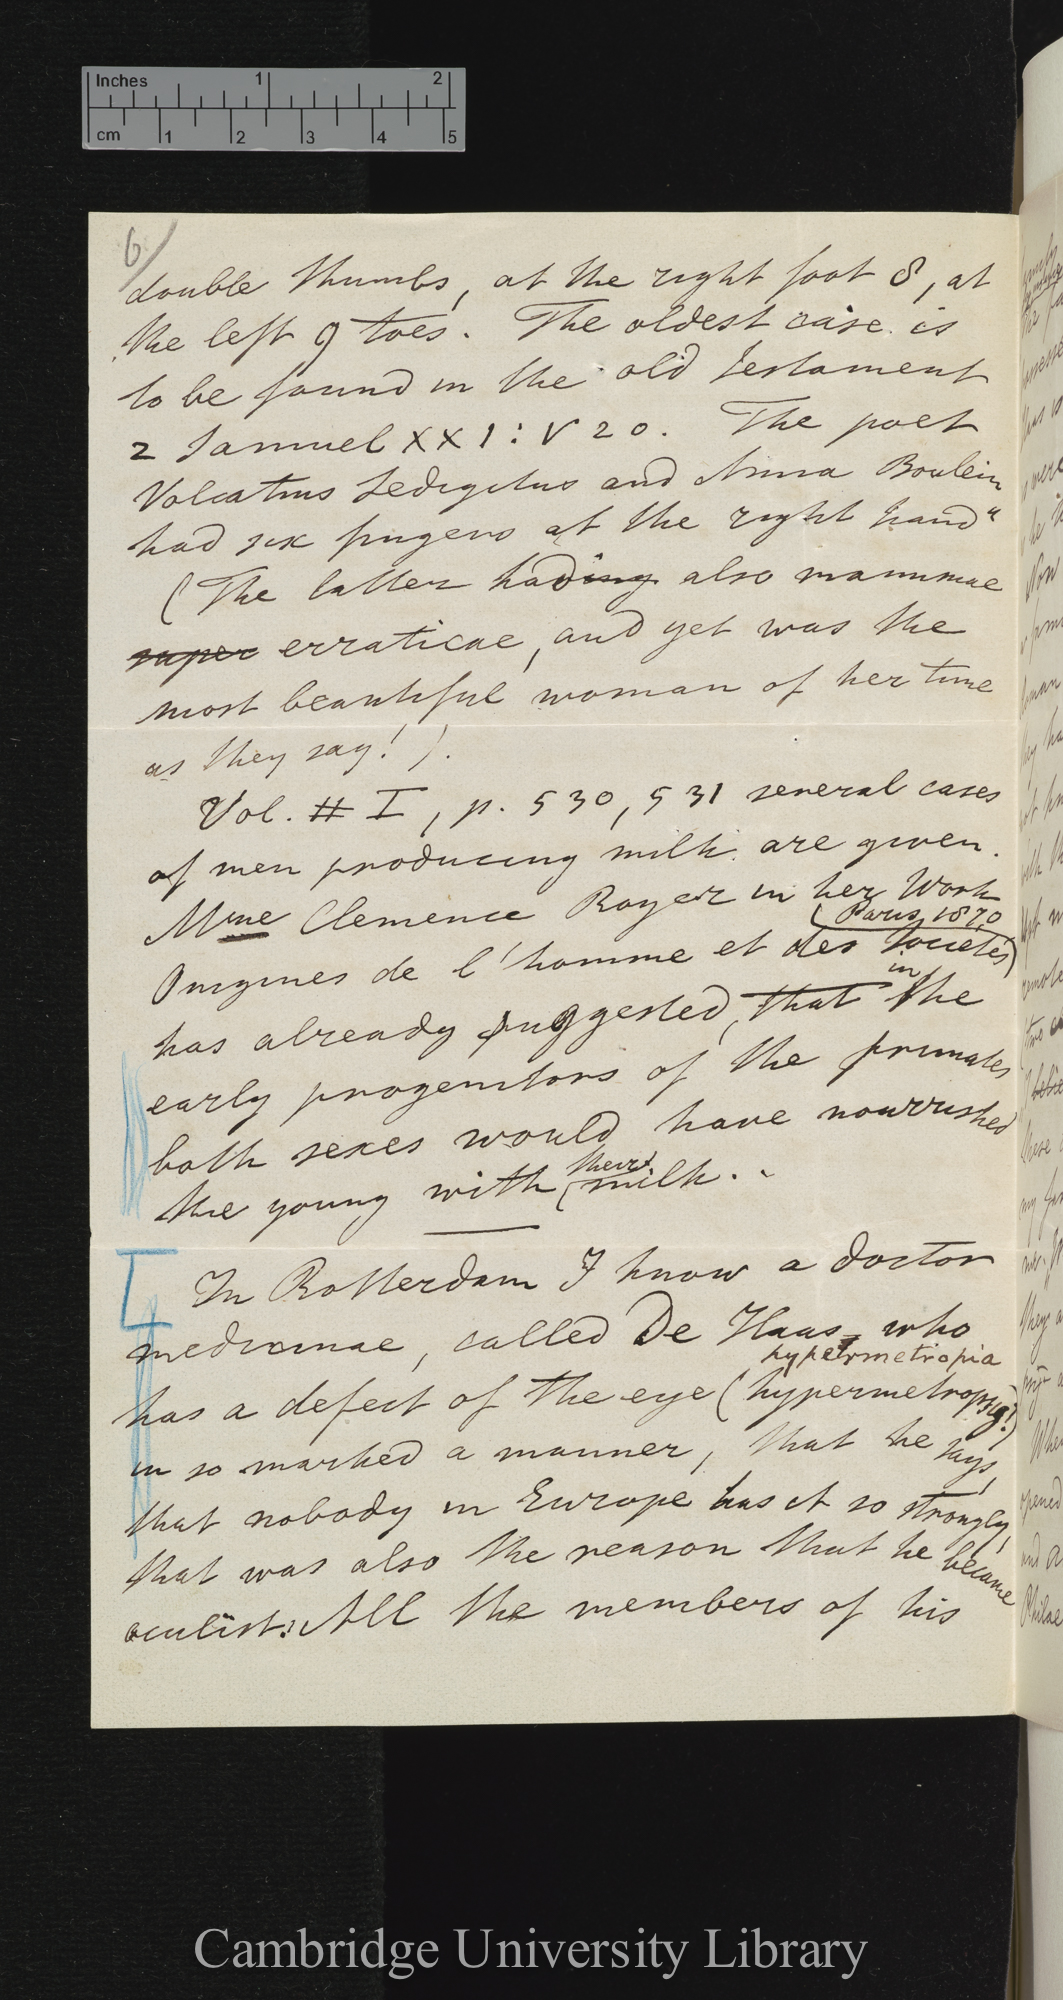 Inches 1 2
cm 1 2 3 4 5
6/
double thumbs, at the right foot 8, at
the left 9 toes. The oldest case is
to be found in the old Testament
2 Samuel XXI: V 20. The poet
Volcatius Sedigitus and Anna Boulein
had six fingers at the right hand"
(The latter hading also mammae
super erraticae, and yet was the
most beautiful woman of her time
as they say!).
Vol. # I, p. 530, 531 several cases
of men producing milk are given.
Mme Clemence Royer in her Work
(Paris, 1870)
Origines de l'homme et des Societés
has already suggested, that in the
early progenitors of the primates
both sexes would have nourrished
the young with their milk.
In Rotterdam I know a doctor
medicinae, called De Haas, who
hypermetropia
has a defect of the eye (hypermetropsia!)
in so marked a manner, that he says,
that nobody in Europe has it so strongly,
that was also the reason that he became
oculist. All the members of his
Cambridge University Library